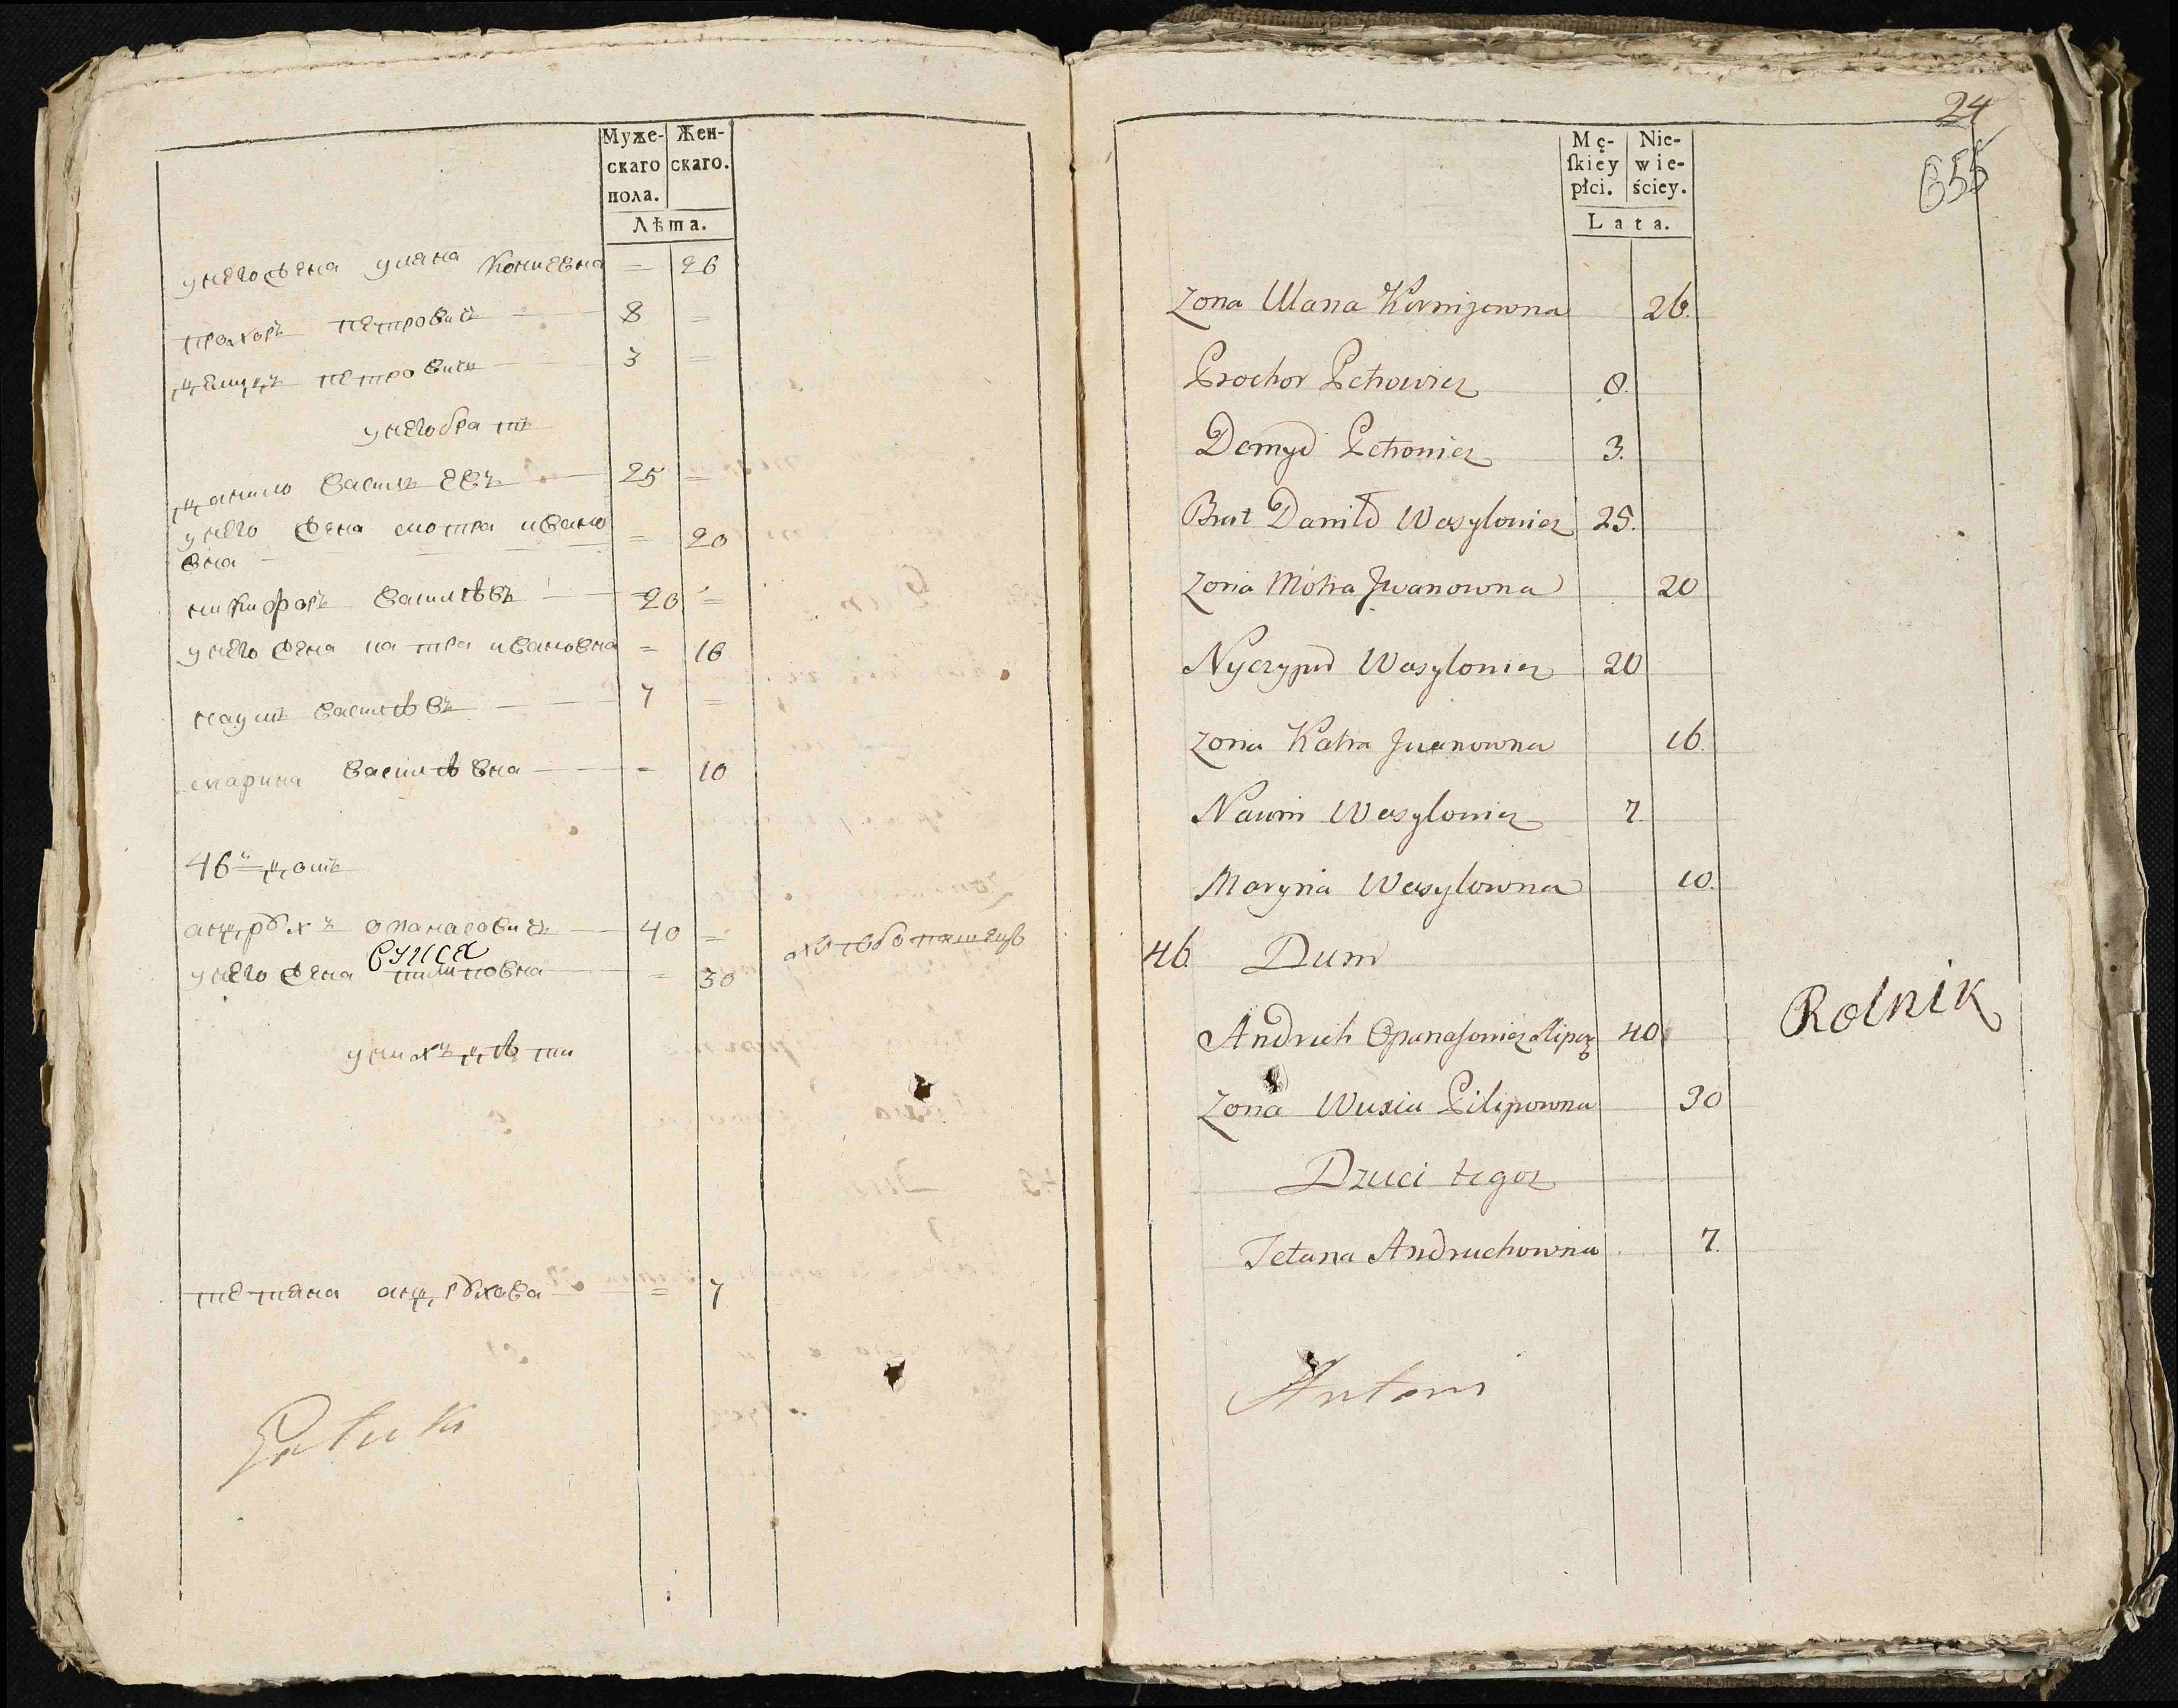 Муже-
скаго
пола.
Жен-
скаго.
Лѣта.
унего жена уляна корниевна = 26
прохоръ петровичъ 8 =
демидъ петровичъ 3 =
унего братъ
данило васильевъ 25 =
унего жена мотра ивано
вна = 20
никифоръ василѣвъ 20 =
унего жена катра ивановна = 16
наумъ василѣвъ 7 =
марина василѣвна = 10
46й домъ
андрȣхъ опанасовичъ 40 = хлѣбопашецъ
вуися
унего жена пилиповна = 30
унихъ дѣти
тетяна андрȣхова = 7
24
655
Mę-
ſkiey
płci.
Nie-
wie-
ściey.
Lata.
Zona Ulana Kornijewna 26.
Prochor Petrowicz 8.
Demyd Petrowicz 3.
Brat Daniło Wasylowicz 25.
Zona Motra Jwanowna 20
Nyczypor Wasylowicz 20
Zona Katra Jwanowna 16.
Naum Wasylowicz 7.
Maryna Wasylowna 10.
46. Dum
Andruch Opanasowicz 40. Rolnik
Zona Wusia Pilipowna 30
Dzieci tegoz
Tetana Andruchowna 7.
Antoni